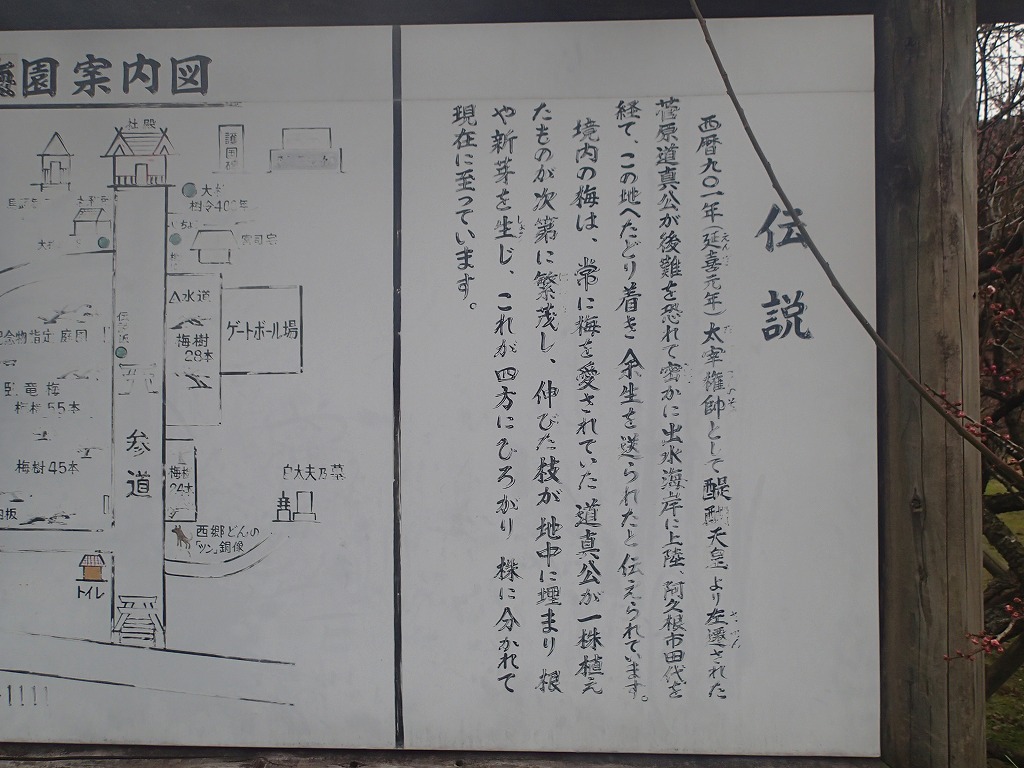 園案内図
社殿
護国碑
大杉
樹令400年
宮司宅
水道
梅樹
28本
ゲートボール場
記念物指定庭園
臥竜梅
梅樹55本
梅樹45本
参道
梅樹
24本
西郷どんの
「ツン」銅像
トイレ
伝説
西暦九〇一年(延喜元年)太宰権帥として醍醐天皇より左遷された
菅原道真公が後難を恐れて密かに出水海岸に上陸、阿久根市田代を
経て、この地へたどり着き余生を送られたと伝えられています。
境内の梅は、常に梅を愛されていた道真公が一株植え
たものが次第に繁茂し、伸びた枝が地中に埋まり根
や新芽を生じ、これが四方にひろがり株に分かれて
現在に至っています。